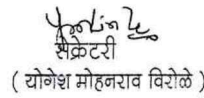 सेक्रेटरी
( योगेश मोहनराव विरोळे )